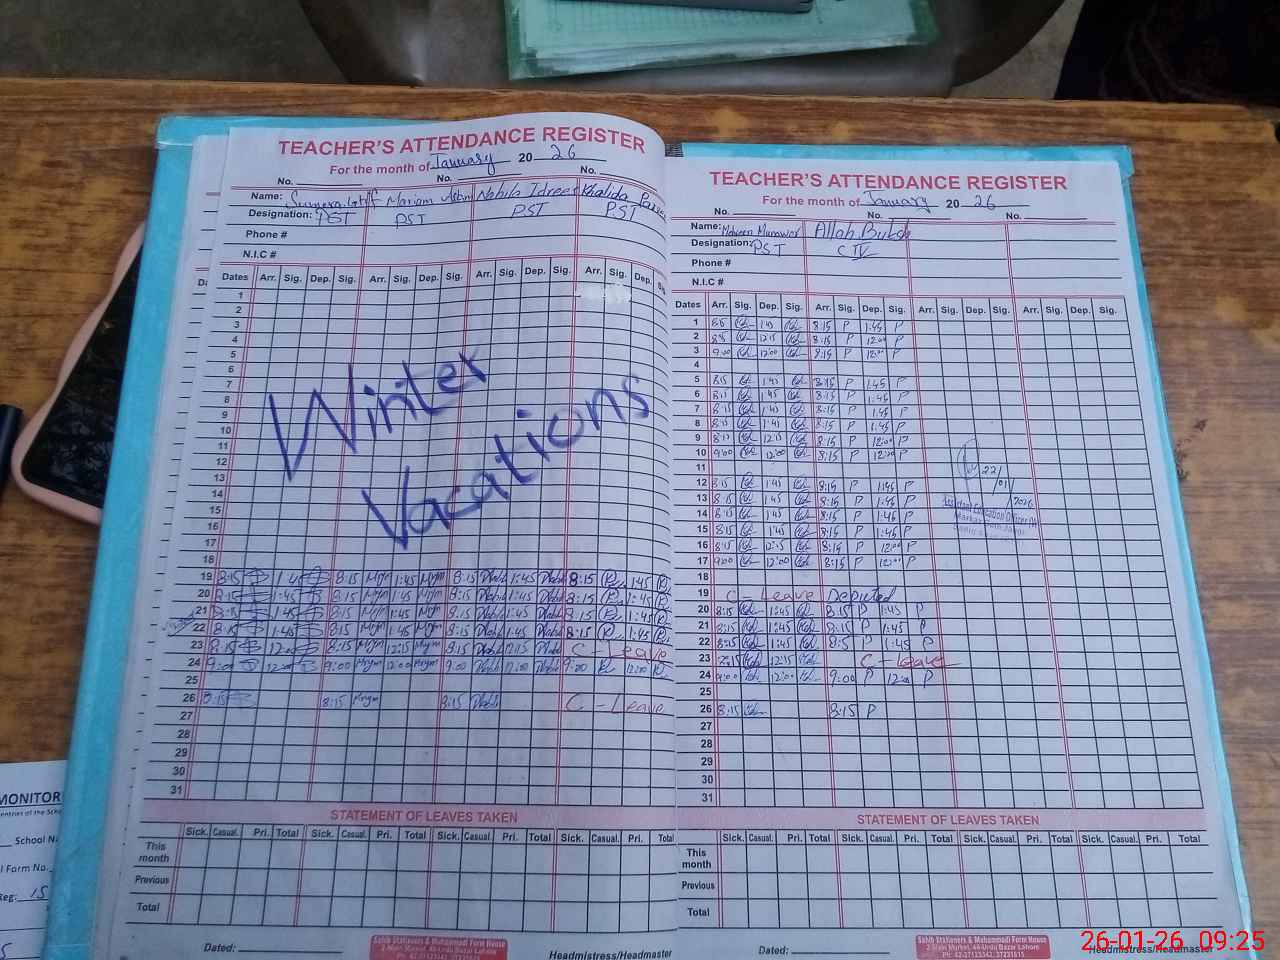 TEACHER'S ATTENDANCE REGISTER
For the month of January 20 26
No. No. No.
Name: Sumera Mariam Nabila Idrees Khalida
Designation: PST PST PST PST
Phone #
N.I.C #
Dates Arr. Sig. Dep. Sig. Arr. Sig. Dep. Sig. Arr. Sig. Dep. Sig. Arr. Sig. Dep.
1
2
3
4
5
6
7
8
9
10
11
12
13
14
15
16
17
18
Winter
Vacations
19 8:15 1:45 8:15 Mym 1:45 Mym 8:15 1:45 8:15 1:45
20 8:15 1:45 8:15 Mym 1:45 Mym 8:15 1:45 8:15 1:45
21 8:15 1:45 8:15 Mym 1:45 Mym 8:15 1:45 8:15 1:45
22 8:15 1:45 8:15 Mym 1:45 Mym 8:15 1:45 8:15 1:45
23 8:15 8:15 Mym 12:15 Mym 8:15 12:15 C - Leave
24 9:00 12:00 9:00 Mym 12:00 Mym 9:00 12:00 9:00 12:00
25
26 8:15 8:15 Mym 8:15 C - Leave
27
28
29
30
31
STATEMENT OF LEAVES TAKEN
Sick. Casual. Pri. Total Sick. Casual. Pri. Total Sick. Casual. Pri. Total Sick. Casual. Pri. Total
This month
Previous
Total
Dated:
Sahib Stationers & Mohammadi Form House
2-Main Market, 40-Urdu Bazar Lahore
Headmistress/Headmaster
TEACHER'S ATTENDANCE REGISTER
For the month of January 20 26
No. No. No.
Name: Munawar Allah Buksh
Designation: PST C IV
Phone #
N.I.C #
Dates Arr. Sig. Dep. Sig. Arr. Sig. Dep. Sig. Arr. Sig. Dep. Sig. Arr. Sig. Dep. Sig.
1 8:15 1:45 8:15 P 1:45 P
2 8:15 12:15 8:15 P 12:00 P
3 9:00 12:00 8:15 P 12:00 P
4
5 8:15 1:45 8:15 P 1:45 P
6 8:15 1:45 8:15 P 1:45 P
7 8:15 1:45 8:15 P 1:45 P
8 8:15 1:45 8:15 P 1:45 P
9 8:15 12:15 8:15 P 12:00 P
10 9:00 12:00 8:15 P 12:00 P
11
12 8:15 1:45 8:15 P 1:45 P
13 8:15 1:45 8:15 P 1:45 P
14 8:15 1:45 8:15 P 1:45 P
15 8:15 1:45 8:15 P 1:45 P
16 8:15 12:15 8:15 P 12:00 P
17 9:00 12:00 8:15 P 12:00 P
18
22/
01/
2026
Assistant Education Officer
19 C - Leave Deputed
20 8:15 1:45 8:15 P 1:45 P
21 8:15 1:45 8:15 P 1:45 P
22 8:15 1:45 8:15 P 1:45 P
23 12:15 C - Leave
24 9:00 12:00 9:00 P 12:00 P
25
26 8:15 8:15 P
27
28
29
30
31
STATEMENT OF LEAVES TAKEN
Sick. Casual. Pri. Total Sick. Casual. Pri. Total Sick. Casual. Pri. Total Sick. Casual. Pri. Total
This month
Previous
Total
Dated:
Sahib Stationers & Mohammadi Form House
2-Main Market, 40-Urdu Bazar Lahore
Headmistress/Headmaster
MONITOR
School
Form No.
Reg: 15
26-01-26 09:25